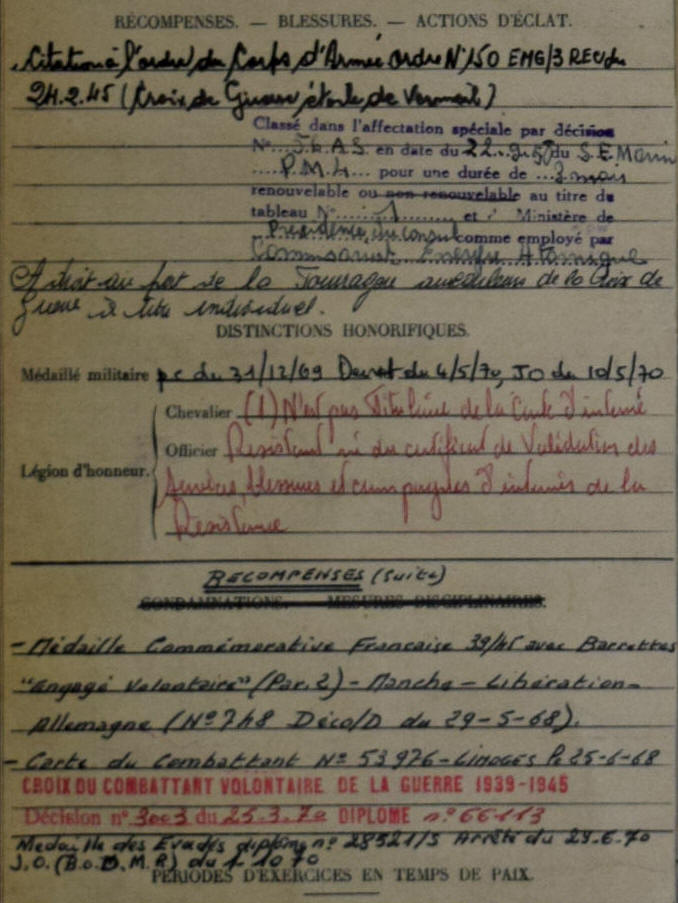 RÉCOMPENSES. — BLESSURES. — ACTIONS D'ÉCLAT.
Citation à l'ordre du Corps d'Armée ordre N° 150 EMG/3 REC du
24.2.45 (Croix de Guerre étoile de Vermeil)
Classé dans l'affectation spéciale par décision
N° en date du 22.9. du S.E. Marin
pour une durée de 3 mois
renouvelable ou non renouvelable au titre du
tableau N° 1 et Ministère de
Présidence du conseil comme employé par
Commissariat Energie Atomique
A droit au port de la Fourragère aux couleurs de la Croix de
Guerre à titre individuel.
DISTINCTIONS HONORIFIQUES.
Médaillé militaire pc du 31/12/69 Decret du 4/5/70, JO du 10/5/70
Chevalier (1) N'est pas Titulaire de la Carte d'interné
Officier Résistant ni du certificat de Validation des
Légion d'honneur.
services, blessures et campagnes d'internés de la
Résistance
RECOMPENSES (suite)
CONDAMNATIONS. — MESURES DISCIPLINAIRES.
- Médaille Commémorative Française 39/45 avec Barrettes
"Engagé Volontaire" (Par. 2) - Manche - Libération -
Allemagne (N° 748 Déco/D du 29-5-68).
- Carte du Combattant N° 53976 - LIMOGES Pc 25-6-68
CROIX DU COMBATTANT VOLONTAIRE DE LA GUERRE 1939-1945
Décision n° 3003 du 25.3.70 DIPLOME n° 66113
Medaille des Evadés diplome n° 28521/S Arrêté du 29.6.70
J.O. (B.O.D.M.R) du 1 10 70
PÉRIODES D'EXERCICES EN TEMPS DE PAIX.